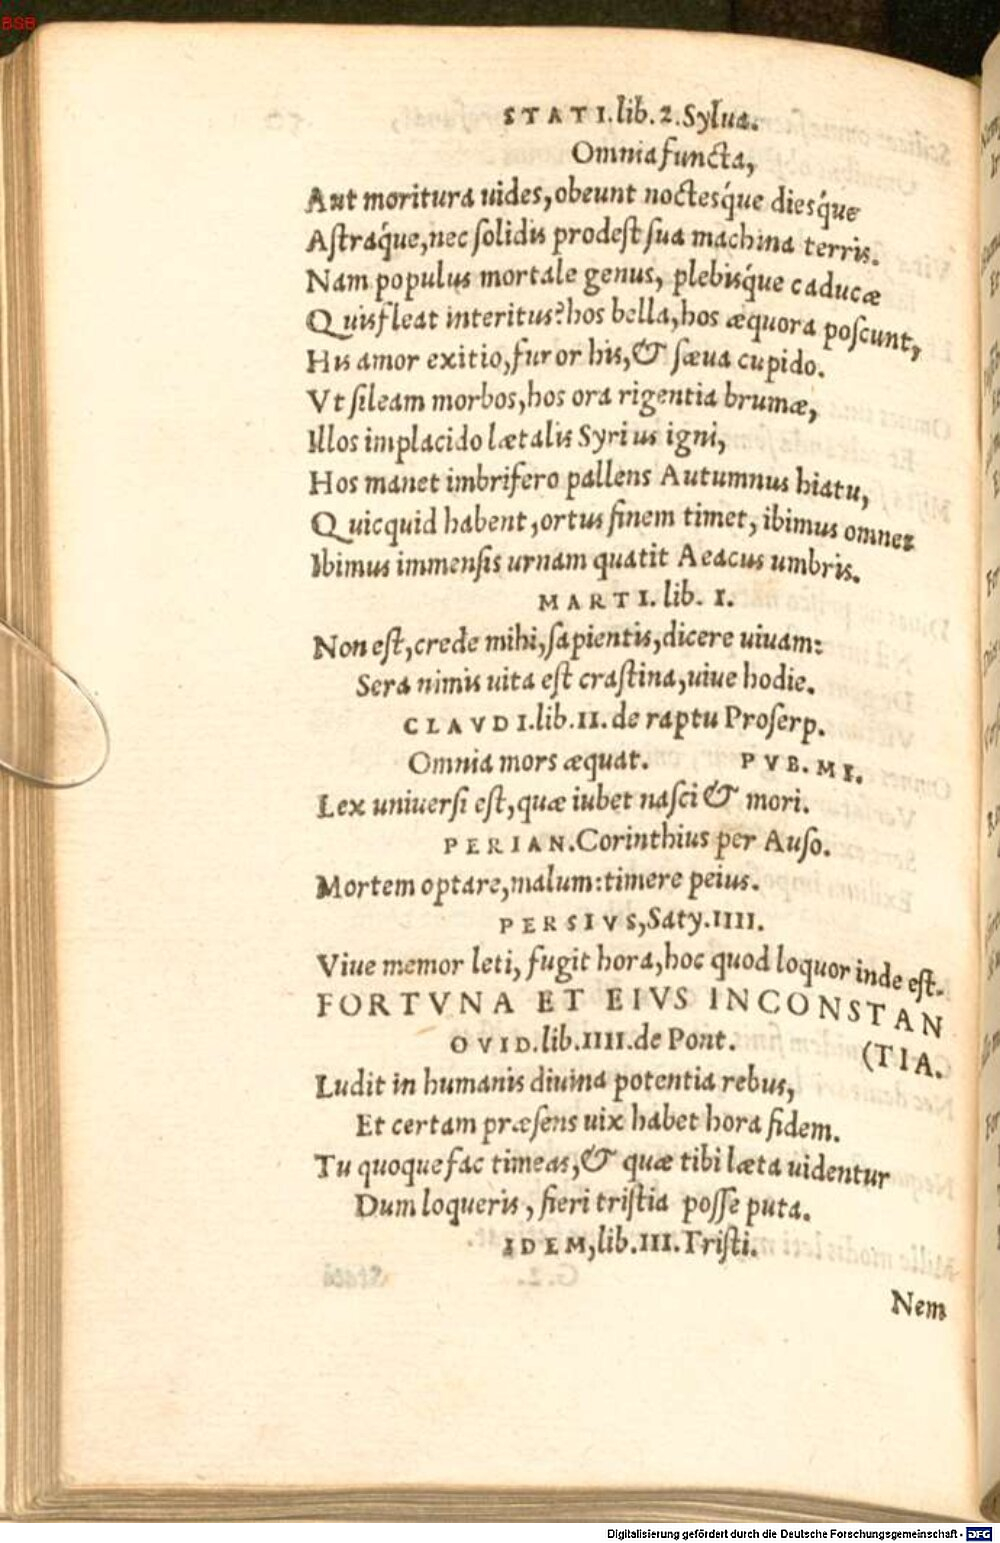 BSB
STATI. lib. 2. Sylua.
Omnia functa,
Aut moritura uides, obeunt noctesq́ue diesq́ue
Astraq́ue, nec solidis prodest sua machina terris.
Nam populus mortale genus, plebisq́ue caducæ
Quis fleat interitus? hos bella, hos æquora poscunt,
His amor exitio, furor his, & sæua cupido.
Vt sileam morbos, hos ora rigentia brumæ,
Illos implacido lætalis Syrius igni,
Hos manet imbrifero pallens Autumnus hiatu,
Quicquid habent, ortus finem timet, ibimus omnes
Ibimus immensis urnam quatit Aeacus umbris.
MARTI. lib. I.
Non est, crede mihi, sapientis, dicere uiuam:
Sera nimis uita est crastina, uiue hodie.
CLAVDI. lib. II. de raptu Proserp.
Omnia mors æquat. PVB. MI.
Lex uniuersi est, quæ iubet nasci & mori.
PERIAN. Corinthius per Auso.
Mortem optare, malum: timere peius.
PERSIVS, Saty. IIII.
Viue memor leti, fugit hora, hoc quod loquor inde est.
FORTVNA ET EIVS INCONSTAN
(TIA.
OVID. lib. IIII. de Pont.
Ludit in humanis diuina potentia rebus,
Et certam præsens uix habet hora fidem.
Tu quoque fac timeas, & quæ tibi læta uidentur
Dum loqueris, fieri tristia posse puta.
IDEM, lib. III. Tristi.
Nem
Digitalisierung gefördert durch die Deutsche Forschungsgemeinschaft - DFG